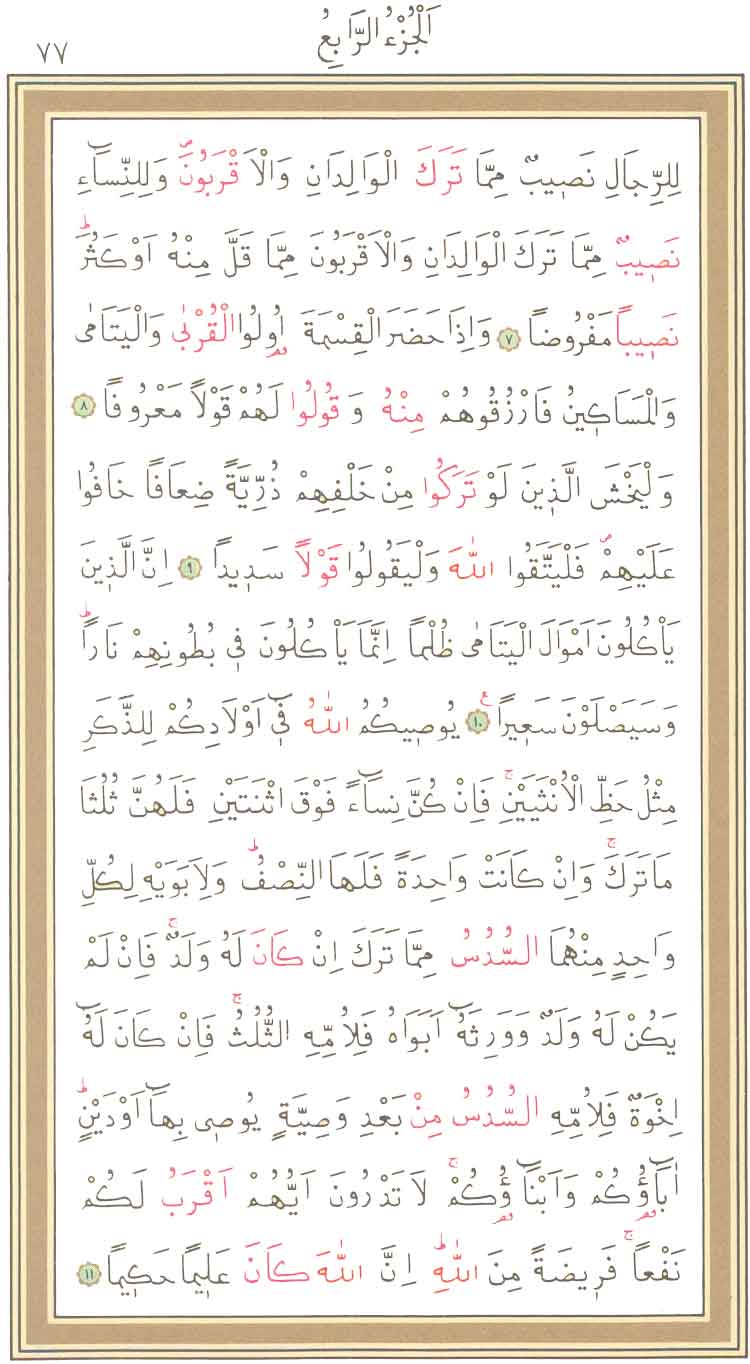 اَلْجُزْءُ الرَّابِعُ
٧٧
لِلرِّجَالِ نَصٖيبٌ مِمَّا تَرَكَ الْوَالِدَانِ وَالْاَقْرَبُونَۖ وَلِلنِّسَٓاءِ
نَصٖيبٌ مِمَّا تَرَكَ الْوَالِدَانِ وَالْاَقْرَبُونَ مِمَّا قَلَّ مِنْهُ اَوْ كَثُرَؕ
نَصٖيباً مَفْرُوضاً ﴿٧﴾ وَاِذَا حَضَرَ الْقِسْمَةَ اُو۬لُوا الْقُرْبٰى وَالْيَتَامٰى
وَالْمَسَاكٖينُ فَارْزُقُوهُمْ مِنْهُ وَقُولُوا لَهُمْ قَوْلاً مَعْرُوفاً ﴿٨﴾
وَلْيَخْشَ الَّذٖينَ لَوْ تَرَكُوا مِنْ خَلْفِهِمْ ذُرِّيَّةً ضِعَافاً خَافُوا
عَلَيْهِمْۖ فَلْيَتَّقُوا اللّٰهَ وَلْيَقُولُوا قَوْلاً سَدٖيداً ﴿٩﴾ اِنَّ الَّذٖينَ
يَأْكُلُونَ اَمْوَالَ الْيَتَامٰى ظُلْماً اِنَّمَا يَأْكُلُونَ فٖي بُطُونِهِمْ نَاراًؕ
وَسَيَصْلَوْنَ سَعٖيراً ﴿١٠﴾ ع يُوصٖيكُمُ اللّٰهُ فٖٓي اَوْلَادِكُمْ لِلذَّكَرِ
مِثْلُ حَظِّ الْاُنْثَيَيْنِۚ فَاِنْ كُنَّ نِسَٓاءً فَوْقَ اثْنَتَيْنِ فَلَهُنَّ ثُلُثَا
مَا تَرَكَۚ وَاِنْ كَانَتْ وَاحِدَةً فَلَهَا النِّصْفُؕ وَلِاَبَوَيْهِ لِكُلِّ
وَاحِدٍ مِنْهُمَا السُّدُسُ مِمَّا تَرَكَ اِنْ كَانَ لَهُ وَلَدٌۚ فَاِنْ لَمْ
يَكُنْ لَهُ وَلَدٌ وَوَرِثَهُٓ اَبَوَاهُ فَلِاُمِّهِ الثُّلُثُۚ فَاِنْ كَانَ لَهُٓ
اِخْوَةٌ فَلِاُمِّهِ السُّدُسُ مِنْ بَعْدِ وَصِيَّةٍ يُوصٖي بِهَٓا اَوْ دَيْنٍؕ
اٰبَٓاؤُ۬كُمْ وَاَبْنَٓاؤُ۬كُمْۚ لَا تَدْرُونَ اَيُّهُمْ اَقْرَبُ لَكُمْ
نَفْعاًۚ فَرٖيضَةً مِنَ اللّٰهِؕ اِنَّ اللّٰهَ كَانَ عَلٖيماً حَكٖيماً ﴿١١﴾